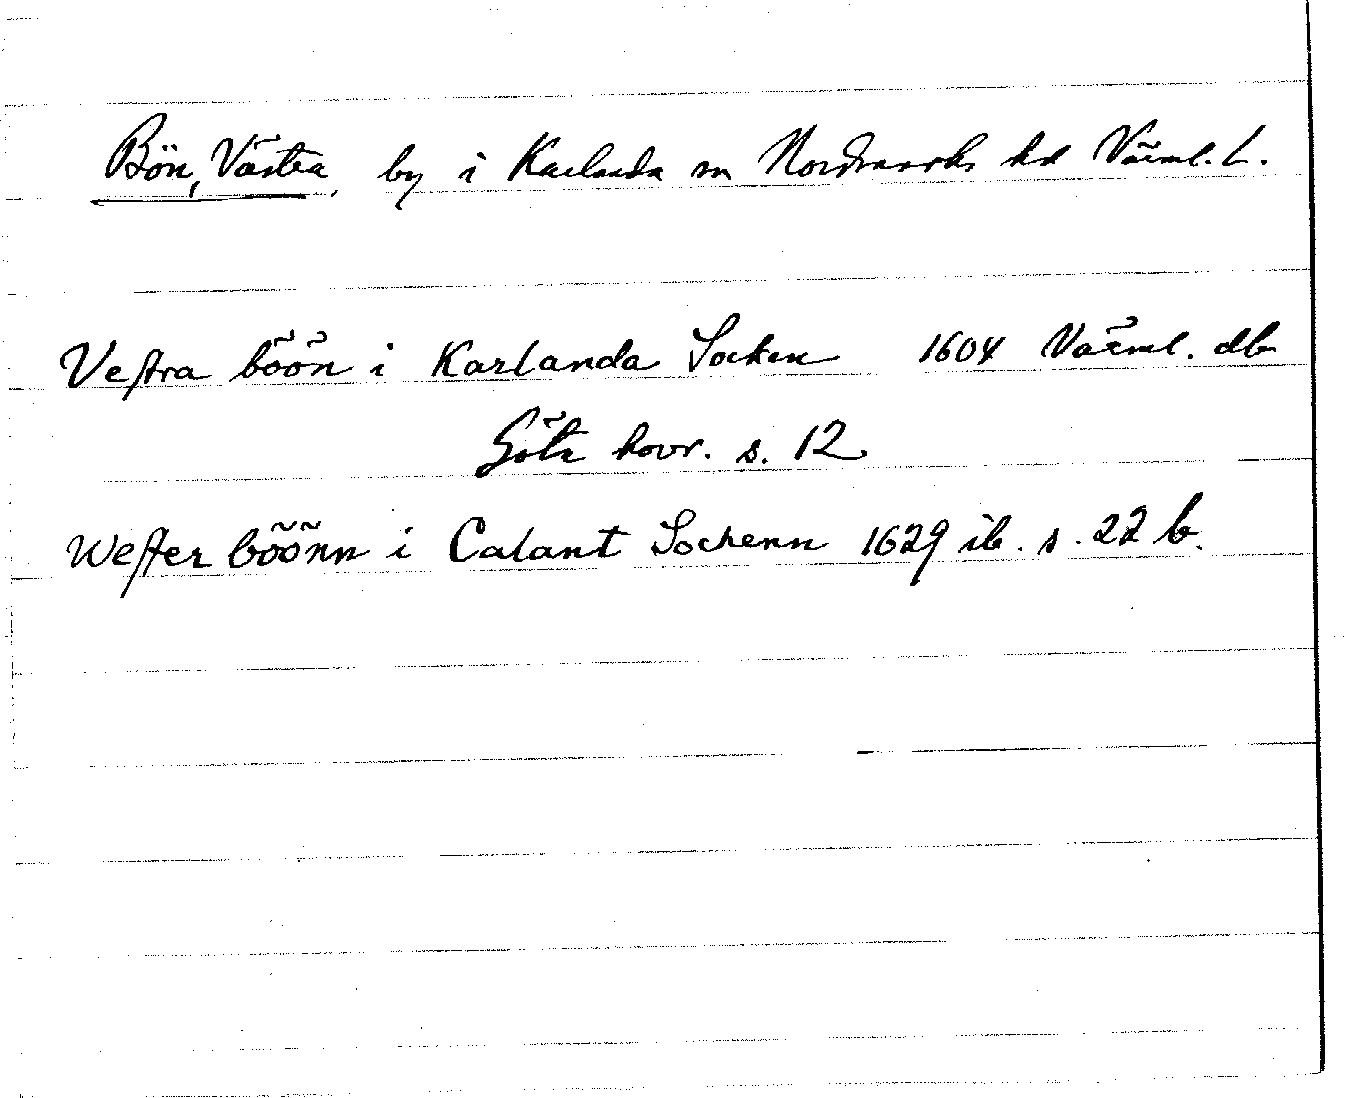 Bön, Västra, by i Karlanda sn Nordmarks hd Värml. L.
Veſtra böön i Karlanda Socken 1604 Värml. db
Göta hovr. s. 12
Weſter böönn i Calant Sochenn 1629 ib. s. 22 b.